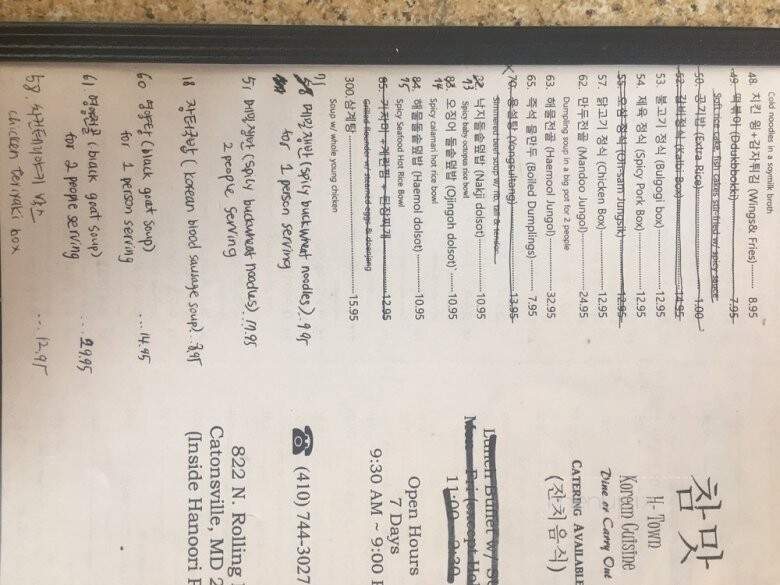 Cold noodle in a soymilk broth
48. 치킨 윙+감자튀김 (Wings& Fries) 8.95
49. 떡볶이 (Ddukbokki) 7.95
Soft rice cake, fish cakes stir-fried w/ spicy sauce
50. 공기밥 (Extra Rice) 1.00
52. 갈비 정식 (Kalbi Box) 14.95
53. 불고기 정식 (Bulgogi box) 12.95
54. 제육 정식 (Spicy Pork Box) 12.95
55. 오삼 정식 (Oh-sam Jungsik) 12.95
57. 닭고기 정식 (Chicken Box) 12.95
62. 만두전골 (Mandoo Jungol) 24.95
Dumpling soup in a big pot for 2 people
63. 해물전골 (Haemool Jungol) 32.95
65. 즉석 물만두 (Boiled Dumplings) 7.95
X 70. 용석탕 (Yongsultang) 13.95
Simmered beef soup w/ rib, tail & tendon
13 낙지돌솥덮밥 (Nakji dolsot) 10.95
Spicy baby octopus rice bowl
14 오징어 돌솥덮밥 (Ojingoh dolsot) 10.95
Spicy calamari hot rice bowl
15 84. 해물돌솥덮밥 (Haemol dolsot) 10.95
Spicy Seafood Hot Rice Bowl
85. 가자미 +계란찜 + 된장찌개 12.95
Grilled flounder w/ steamed eggs & doenjang
300.삼계탕 15.95
Soup w/ whole young chicken
71 메밀쟁반 (spicy buckwheat noodles). 9.95
for 1 person serving
51 메밀쟁반 (spicy buckwheat noodles)... 17.95
2 people serving
18 장터국밥 (korean blood sausage soup).. 8.95
60 염소탕 (black goat soup) ...14.95
for 1 person serving
61 염소전골 (black goat soup) ... 29.95
for 2 people serving
58. 치킨데리야끼 박스 ... 12.95
chicken teriyaki box
참맛
H-Town
Korean Cuisine
Dine or Carry Out
CATERING AVAILABLE
(잔치음식)
Lunch Buffet w/
Mon - Fri (except
11:00 - 2:30
Open Hours
7 Days
9:30 AM ~ 9:00
☎ (410) 744-3027
822 N. Rolling
Catonsville, MD 2
(Inside Hanoori